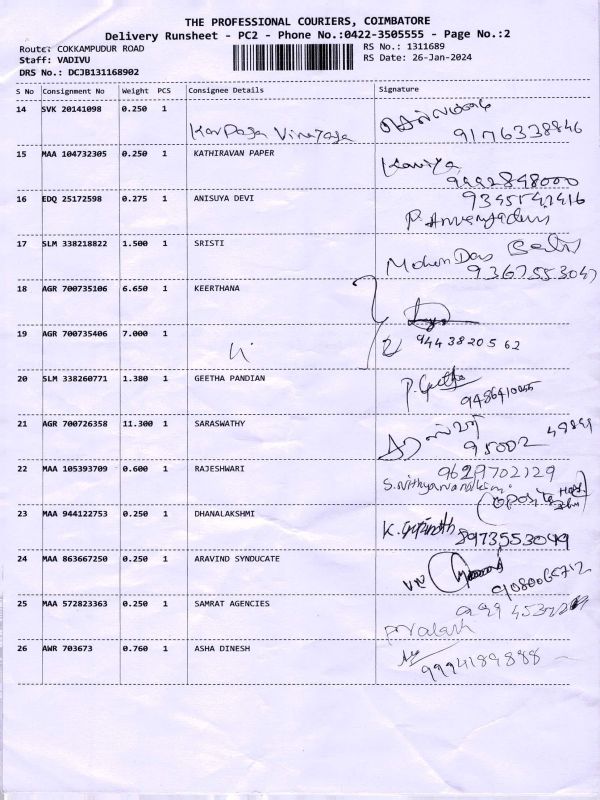 THE PROFESSIONAL COURIERS, COIMBATORE
Delivery Runsheet - PC2 - Phone No.:0422-3505555 - Page No.:2
Route: COKKAMPUDUR ROAD
RS No.: 1311689
Staff: VADIVU
RS Date: 26-Jan-2024
DRS No.: DCJB131168902
S No Consignment No Weight PCS Consignee Details Signature
14 SVK 20141098 0.250 1
Karpaga Vinayaga
9176338846
15 MAA 104732305 0.250 1 KATHIRAVAN PAPER
Kaviya
9442848000
16 EDQ 25172598 0.275 1 ANISUYA DEVI
17 SLM 338218822 1.500 1 SRISTI
Mohan Das
9367553047
18 AGR 700735106 6.650 1 KEERTHANA
19 AGR 700735406 7.000 1
9443820562
20 SLM 338260771 1.380 1 GEETHA PANDIAN
P. Geetha
21 AGR 700726358 11.300 1 SARASWATHY
95002
22 MAA 105393709 0.600 1 RAJESHWARI
9629702129
23 MAA 944122753 0.250 1 DHANALAKSHMI
8973553049
24 MAA 863667250 0.250 1 ARAVIND SYNDUCATE
25 MAA 572823363 0.250 1 SAMRAT AGENCIES
26 AWR 703673 0.760 1 ASHA DINESH
9994189888